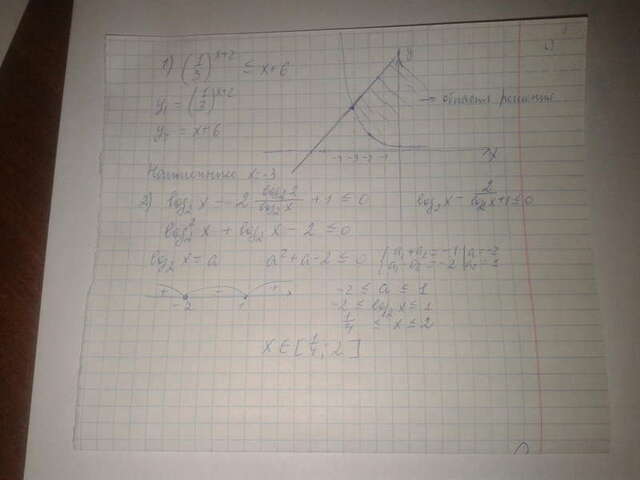 1) (1/3)^(x+2) ≤ x+6
y₁ = (1/3)^(x+2)
y₂ = x+6
y
→ область решения
-4 -3 -2 -1
x
Наименьшее x = -3
2) log₂ x - 2 log₂ 2 / log₂ x + 1 ≤ 0
log₂ x - 2 / log₂ x + 1 ≤ 0
log₂² x + log₂ x - 2 ≤ 0
log₂ x = a
a² + a - 2 ≤ 0
a₁ + a₂ = -1 | a = -2
a₁ · a₂ = -2 | a₂ = 1
+ - +
-2 1
-2 ≤ a ≤ 1
-2 ≤ log₂ x ≤ 1
1/4 ≤ x ≤ 2
x ∈ [1/4; 2]